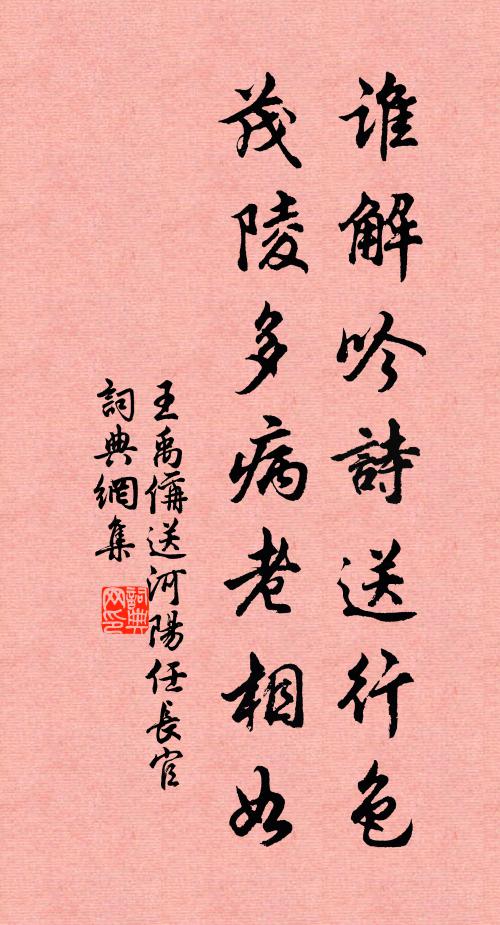 誰解吟詩送行色
茂陵多病老相如
王禹偁送河陽任長官
詞典網集
詞典网印